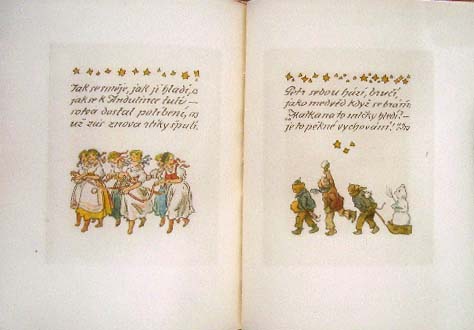 Jak se směje, jak ji hladí, a
jak se k Andulince tulí –
sotva dostal políbení,
už zas znova rtíky špulí.
Petr sebou hází, bručí,
jako medvěd když se brání,
Matka na to mlčky hledí: –
je to pěkné vychování!